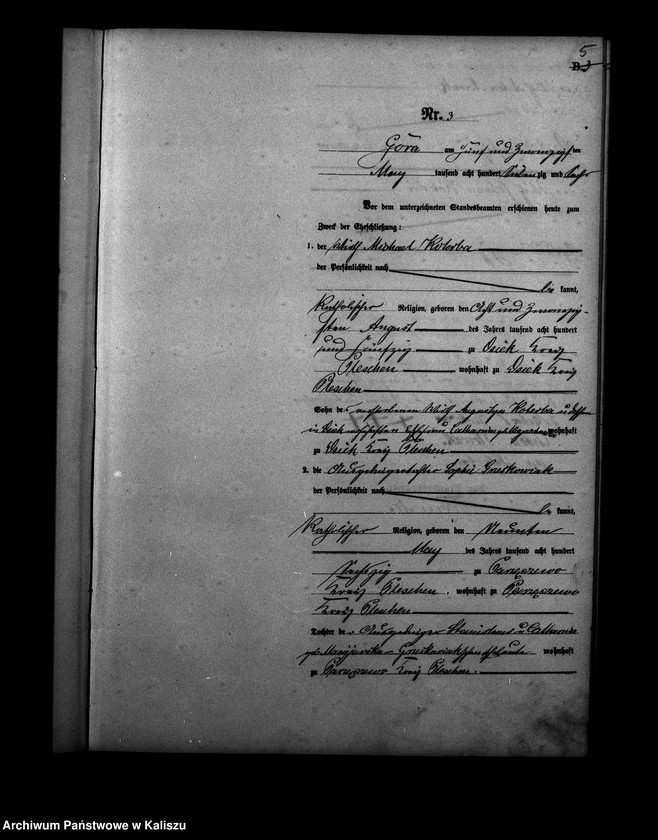 5
B.
Nr. 3
Góra am fünf und zwanzigsten
May tausend acht hundert siebenzig und sechs
Vor dem unterzeichneten Standesbeamten erschienen heute zum
Zweck der Eheschließung:
1. der Wirth Michael Koterba
der Persönlichkeit nach
be kannt,
Katholischer Religion, geboren den Acht und zwanzig-
sten August des Jahres tausend acht hundert
und fünfzig zu Osiek Kreis
Pleschen wohnhaft zu Osiek Kreis
Pleschen
Sohn des verstorbenen Wirth Augustyn Koterba u dessen
in Osiek Ehefrau Catharina geb. wohnhaft
zu Osiek Kreis Pleschen
2. die Ausgedingertochter Sophie Gruskowiak
der Persönlichkeit nach
be kannt,
Katholischer Religion, geboren den Neunten
May des Jahres tausend acht hundert
Sechszig zu Panczewo
Kreis Pleschen, wohnhaft zu Panczewo
Kreis Pleschen
Tochter der Ausgedinger Stanislaus u Catharina
geb. Gruskowiakschen Eheleute wohnhaft
zu Panczewo Kreis Pleschen.
Archiwum Państwowe w Kaliszu